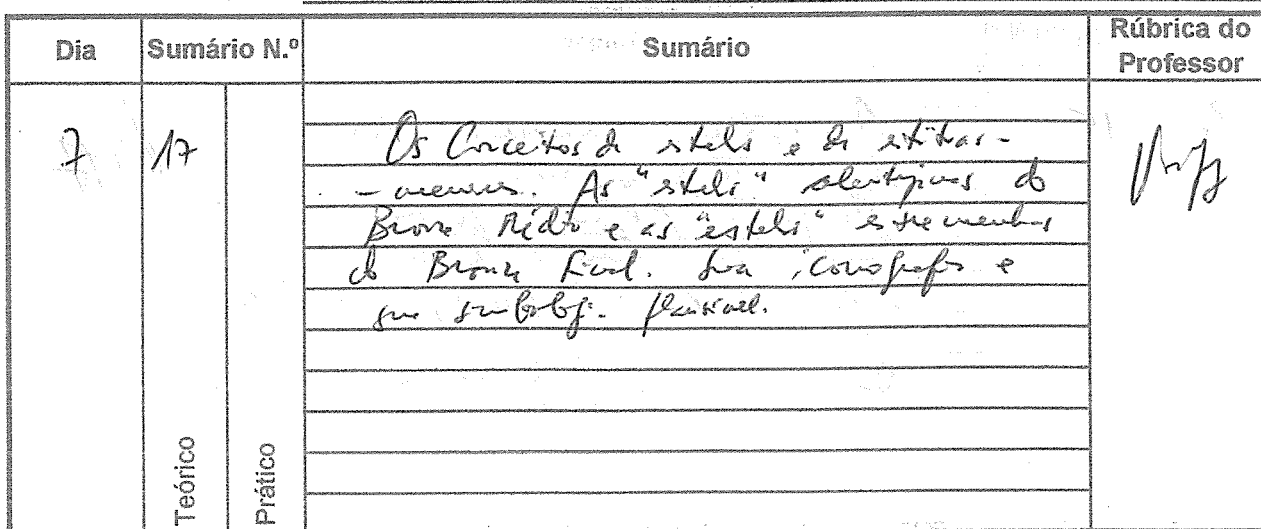 Dia Sumário N.º Sumário Rúbrica do Professor
7 17
Os Conceitos de estela e de estátuas-
-menires. As "estelas" alentejanas do
Bronze Médio e as "estelas" estremenhas
do Bronze Final. Sua iconografia e
sua simbologia plausível.
Teórico Prático